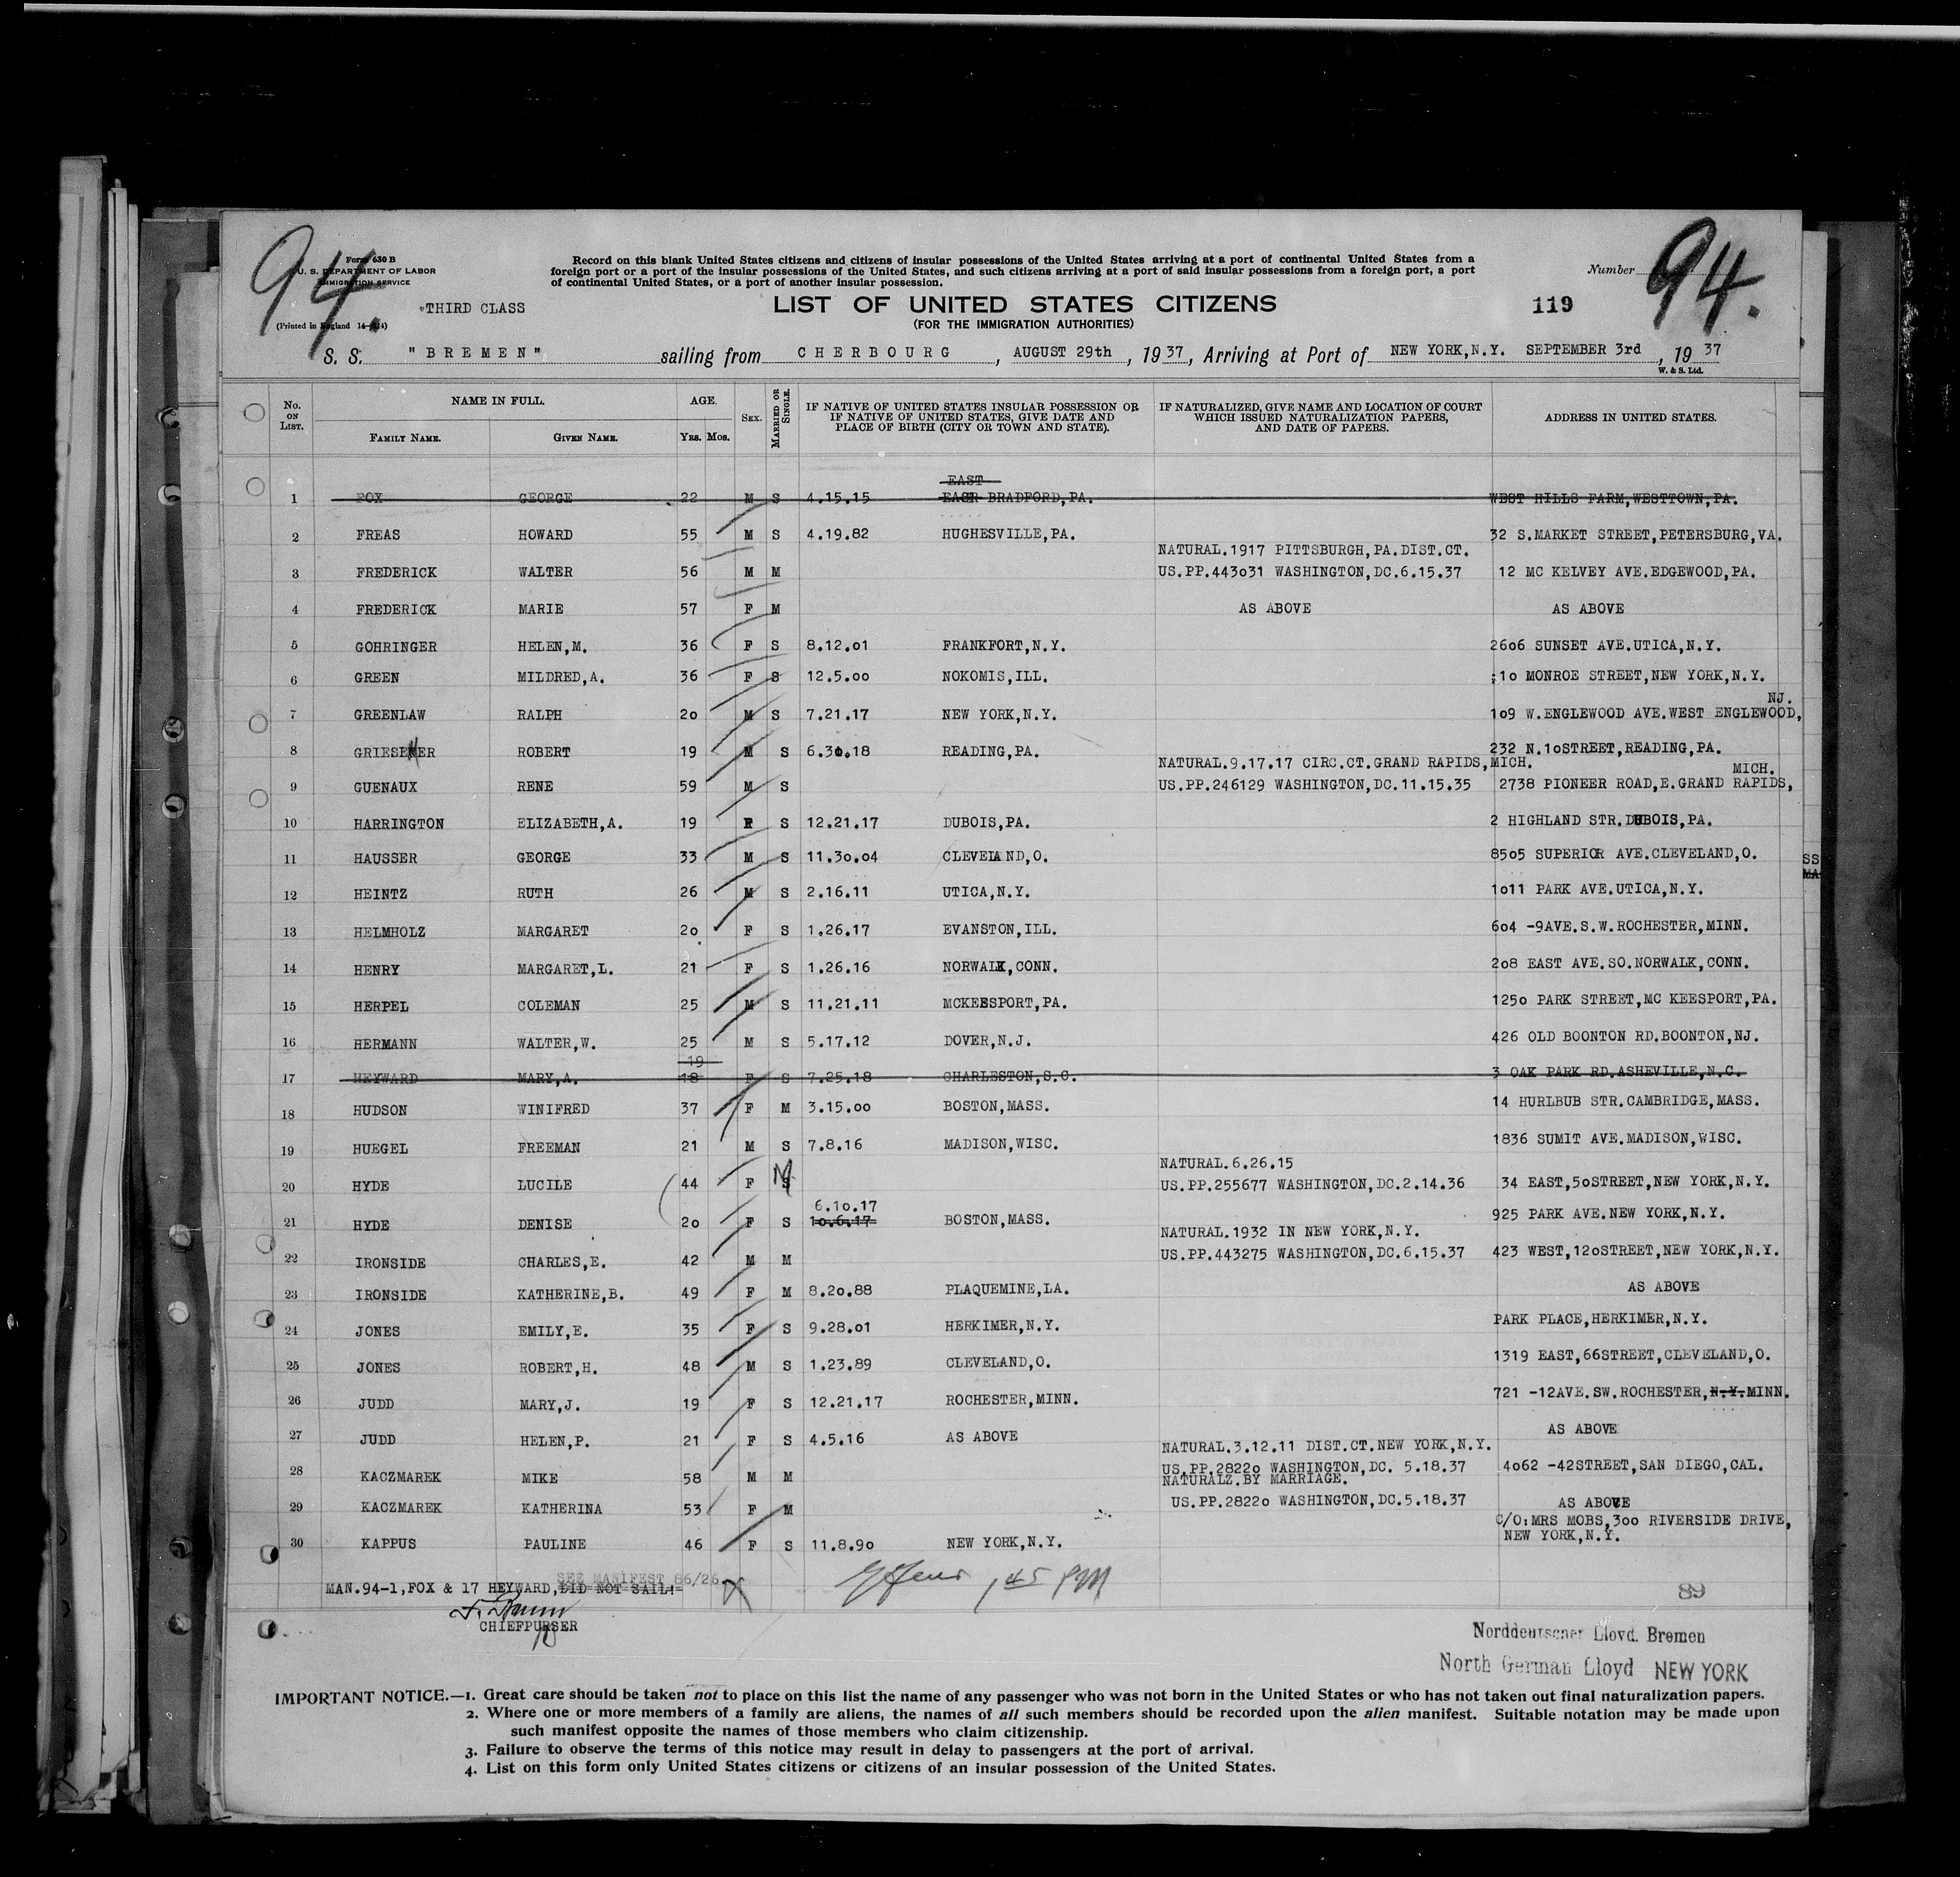 94.
Form 630 B
U. S. DEPARTMENT OF LABOR
IMMIGRATION SERVICE
Record on this blank United States citizens and citizens of insular possessions of the United States arriving at a port of continental United States from a
foreign port or a port of the insular possessions of the United States, and such citizens arriving at a port of said insular possessions from a foreign port, a port
of continental United States, or a port of another insular possession.
Number 94.
"THIRD CLASS
LIST OF UNITED STATES CITIZENS
119
(Printed in England
(FOR THE IMMIGRATION AUTHORITIES)
S. S. "BREMEN" sailing from CHERBOURG, AUGUST 29th, 1937, Arriving at Port of NEW YORK,N.Y. SEPTEMBER 3rd, 1937
W. & S. Ltd.
No. ON LIST. NAME IN FULL. FAMILY NAME. GIVEN NAME. AGE. YRS. MOS. SEX. MARRIED OR SINGLE. IF NATIVE OF UNITED STATES INSULAR POSSESSION OR IF NATIVE OF UNITED STATES, GIVE DATE AND PLACE OF BIRTH (CITY OR TOWN AND STATE). IF NATURALIZED, GIVE NAME AND LOCATION OF COURT WHICH ISSUED NATURALIZATION PAPERS, AND DATE OF PAPERS. ADDRESS IN UNITED STATES.
EAST
1 FOX GEORGE 22 M S 4.15.15 EAST BRADFORD,PA. WEST HILLS FARM,WESTTOWN,PA.
2 FREAS HOWARD 55 M S 4.19.82 HUGHESVILLE,PA. 32 S.MARKET STREET,PETERSBURG,VA.
NATURAL.1917 PITTSBURGH,PA.DIST.CT.
3 FREDERICK WALTER 56 M M US.PP.443031 WASHINGTON,DC.6.15.37 12 MC KELVEY AVE.EDGEWOOD,PA.
4 FREDERICK MARIE 57 F M AS ABOVE AS ABOVE
5 GOHRINGER HELEN,M. 36 F S 8.12.01 FRANKFORT,N.Y. 2606 SUNSET AVE.UTICA,N.Y.
6 GREEN MILDRED,A. 36 F S 12.5.00 NOKOMIS,ILL. 10 MONROE STREET,NEW YORK,N.Y.
NJ.
7 GREENLAW RALPH 20 M S 7.21.17 NEW YORK,N.Y. 109 W.ENGLEWOOD AVE.WEST ENGLEWOOD,
8 GRIESEMER ROBERT 19 M S 6.30.18 READING,PA. 232 N.10STREET,READING,PA.
NATURAL.9.17.17 CIRC.CT.GRAND RAPIDS,MICH.
MICH.
9 GUENAUX RENE 59 M S US.PP.246129 WASHINGTON,DC.11.15.35 2738 PIONEER ROAD,E.GRAND RAPIDS,
10 HARRINGTON ELIZABETH,A. 19 F S 12.21.17 DUBOIS,PA. 2 HIGHLAND STR.DUBOIS,PA.
11 HAUSSER GEORGE 33 M S 11.30.04 CLEVELAND,O. 8505 SUPERIOR AVE.CLEVELAND,O.
SS
MA
12 HEINTZ RUTH 26 M S 2.16.11 UTICA,N.Y. 1011 PARK AVE.UTICA,N.Y.
13 HELMHOLZ MARGARET 20 F S 1.26.17 EVANSTON,ILL. 604 -9AVE.S.W.ROCHESTER,MINN.
14 HENRY MARGARET,L. 21 F S 1.26.16 NORWALK,CONN. 208 EAST AVE.SO.NORWALK,CONN.
15 HERPEL COLEMAN 25 M S 11.21.11 MCKEESPORT,PA. 1250 PARK STREET,MC KEESPORT,PA.
16 HERMANN WALTER,W. 25 M S 5.17.12 DOVER,N.J. 426 OLD BOONTON RD.BOONTON,NJ.
19
17 HEYWARD MARY,A. 18 F S 7.25.18 CHARLESTON,S.C. 3 OAK PARK RD.ASHEVILLE,N.C.
18 HUDSON WINIFRED 37 F M 3.15.00 BOSTON,MASS. 14 HURLBUB STR.CAMBRIDGE,MASS.
19 HUEGEL FREEMAN 21 M S 7.8.16 MADISON,WISC. 1836 SUMIT AVE.MADISON,WISC.
NATURAL.6.26.15
20 HYDE LUCILE 44 F M US.PP.255677 WASHINGTON,DC.2.14.36 34 EAST,50STREET,NEW YORK,N.Y.
6.10.17
21 HYDE DENISE 20 F S 10.6.17 BOSTON,MASS. 925 PARK AVE.NEW YORK,N.Y.
NATURAL.1932 IN NEW YORK,N.Y.
22 IRONSIDE CHARLES,E. 42 M M US.PP.443275 WASHINGTON,DC.6.15.37 423 WEST,120STREET,NEW YORK,N.Y.
23 IRONSIDE KATHERINE,B. 49 F M 8.20.88 PLAQUEMINE,LA. AS ABOVE
24 JONES EMILY,E. 35 F S 9.28.01 HERKIMER,N.Y. PARK PLACE,HERKIMER,N.Y.
25 JONES ROBERT,H. 48 M S 1.23.89 CLEVELAND,O. 1319 EAST,66STREET,CLEVELAND,O.
26 JUDD MARY,J. 19 F S 12.21.17 ROCHESTER,MINN. 721 -12AVE.SW.ROCHESTER,N.Y.MINN.
27 JUDD HELEN,P. 21 F S 4.5.16 AS ABOVE AS ABOVE
NATURAL.3.12.11 DIST.CT.NEW YORK,N.Y.
28 KACZMAREK MIKE 58 M M US.PP.28220 WASHINGTON,DC. 5.18.37 4062 -42STREET,SAN DIEGO,CAL.
NATURALZ.BY MARRIAGE.
29 KACZMAREK KATHERINA 53 F M US.PP.28220 WASHINGTON,DC.5.18.37 AS ABOVE
C/O:MRS MOBS,300 RIVERSIDE DRIVE,
30 KAPPUS PAULINE 46 F S 11.8.90 NEW YORK,N.Y. NEW YORK,N.Y.
SEE MANIFEST 86/26
MAN.94-1,FOX & 17 HEYWARD,DID NOT SAIL!
1 45 PM
89
CHIEFPURSER
Norddeutscher Lloyd. Bremen
North German Lloyd NEW YORK
IMPORTANT NOTICE.—1. Great care should be taken not to place on this list the name of any passenger who was not born in the United States or who has not taken out final naturalization papers.
2. Where one or more members of a family are aliens, the names of all such members should be recorded upon the alien manifest. Suitable notation may be made upon
such manifest opposite the names of those members who claim citizenship.
3. Failure to observe the terms of this notice may result in delay to passengers at the port of arrival.
4. List on this form only United States citizens or citizens of an insular possession of the United States.